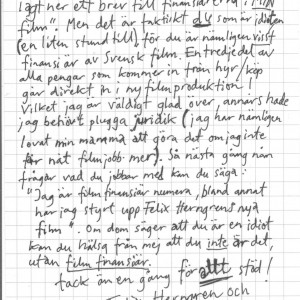 lagt ner ett brev till finansiärerna i MIN
film". Men det är faktiskt du som är idioten
(en liten stund till), för du är nämligen visst
finansiär av Svensk film. En tredjedel av
alla pengar som kommer in från hyr/köp
går direkt in i ny filmproduktion!
Vilket jag är väldigt glad över, annars hade
jag behövt plugga juridik (jag har nämligen
lovat min mamma att göra det om jag inte
får nåt filmjobb mer). Så nästa gång nån
frågar vad du jobbar med kan du säga:
"Jag är filmfinansiär numera, bland annat
har jag styrt upp Felix Herngrens nya
film". Om dom säger att du är en idiot
kan du hälsa från mej att du inte är det,
utan filmfinansiär.
Tack än en gång för allt stöd!
Herngren och